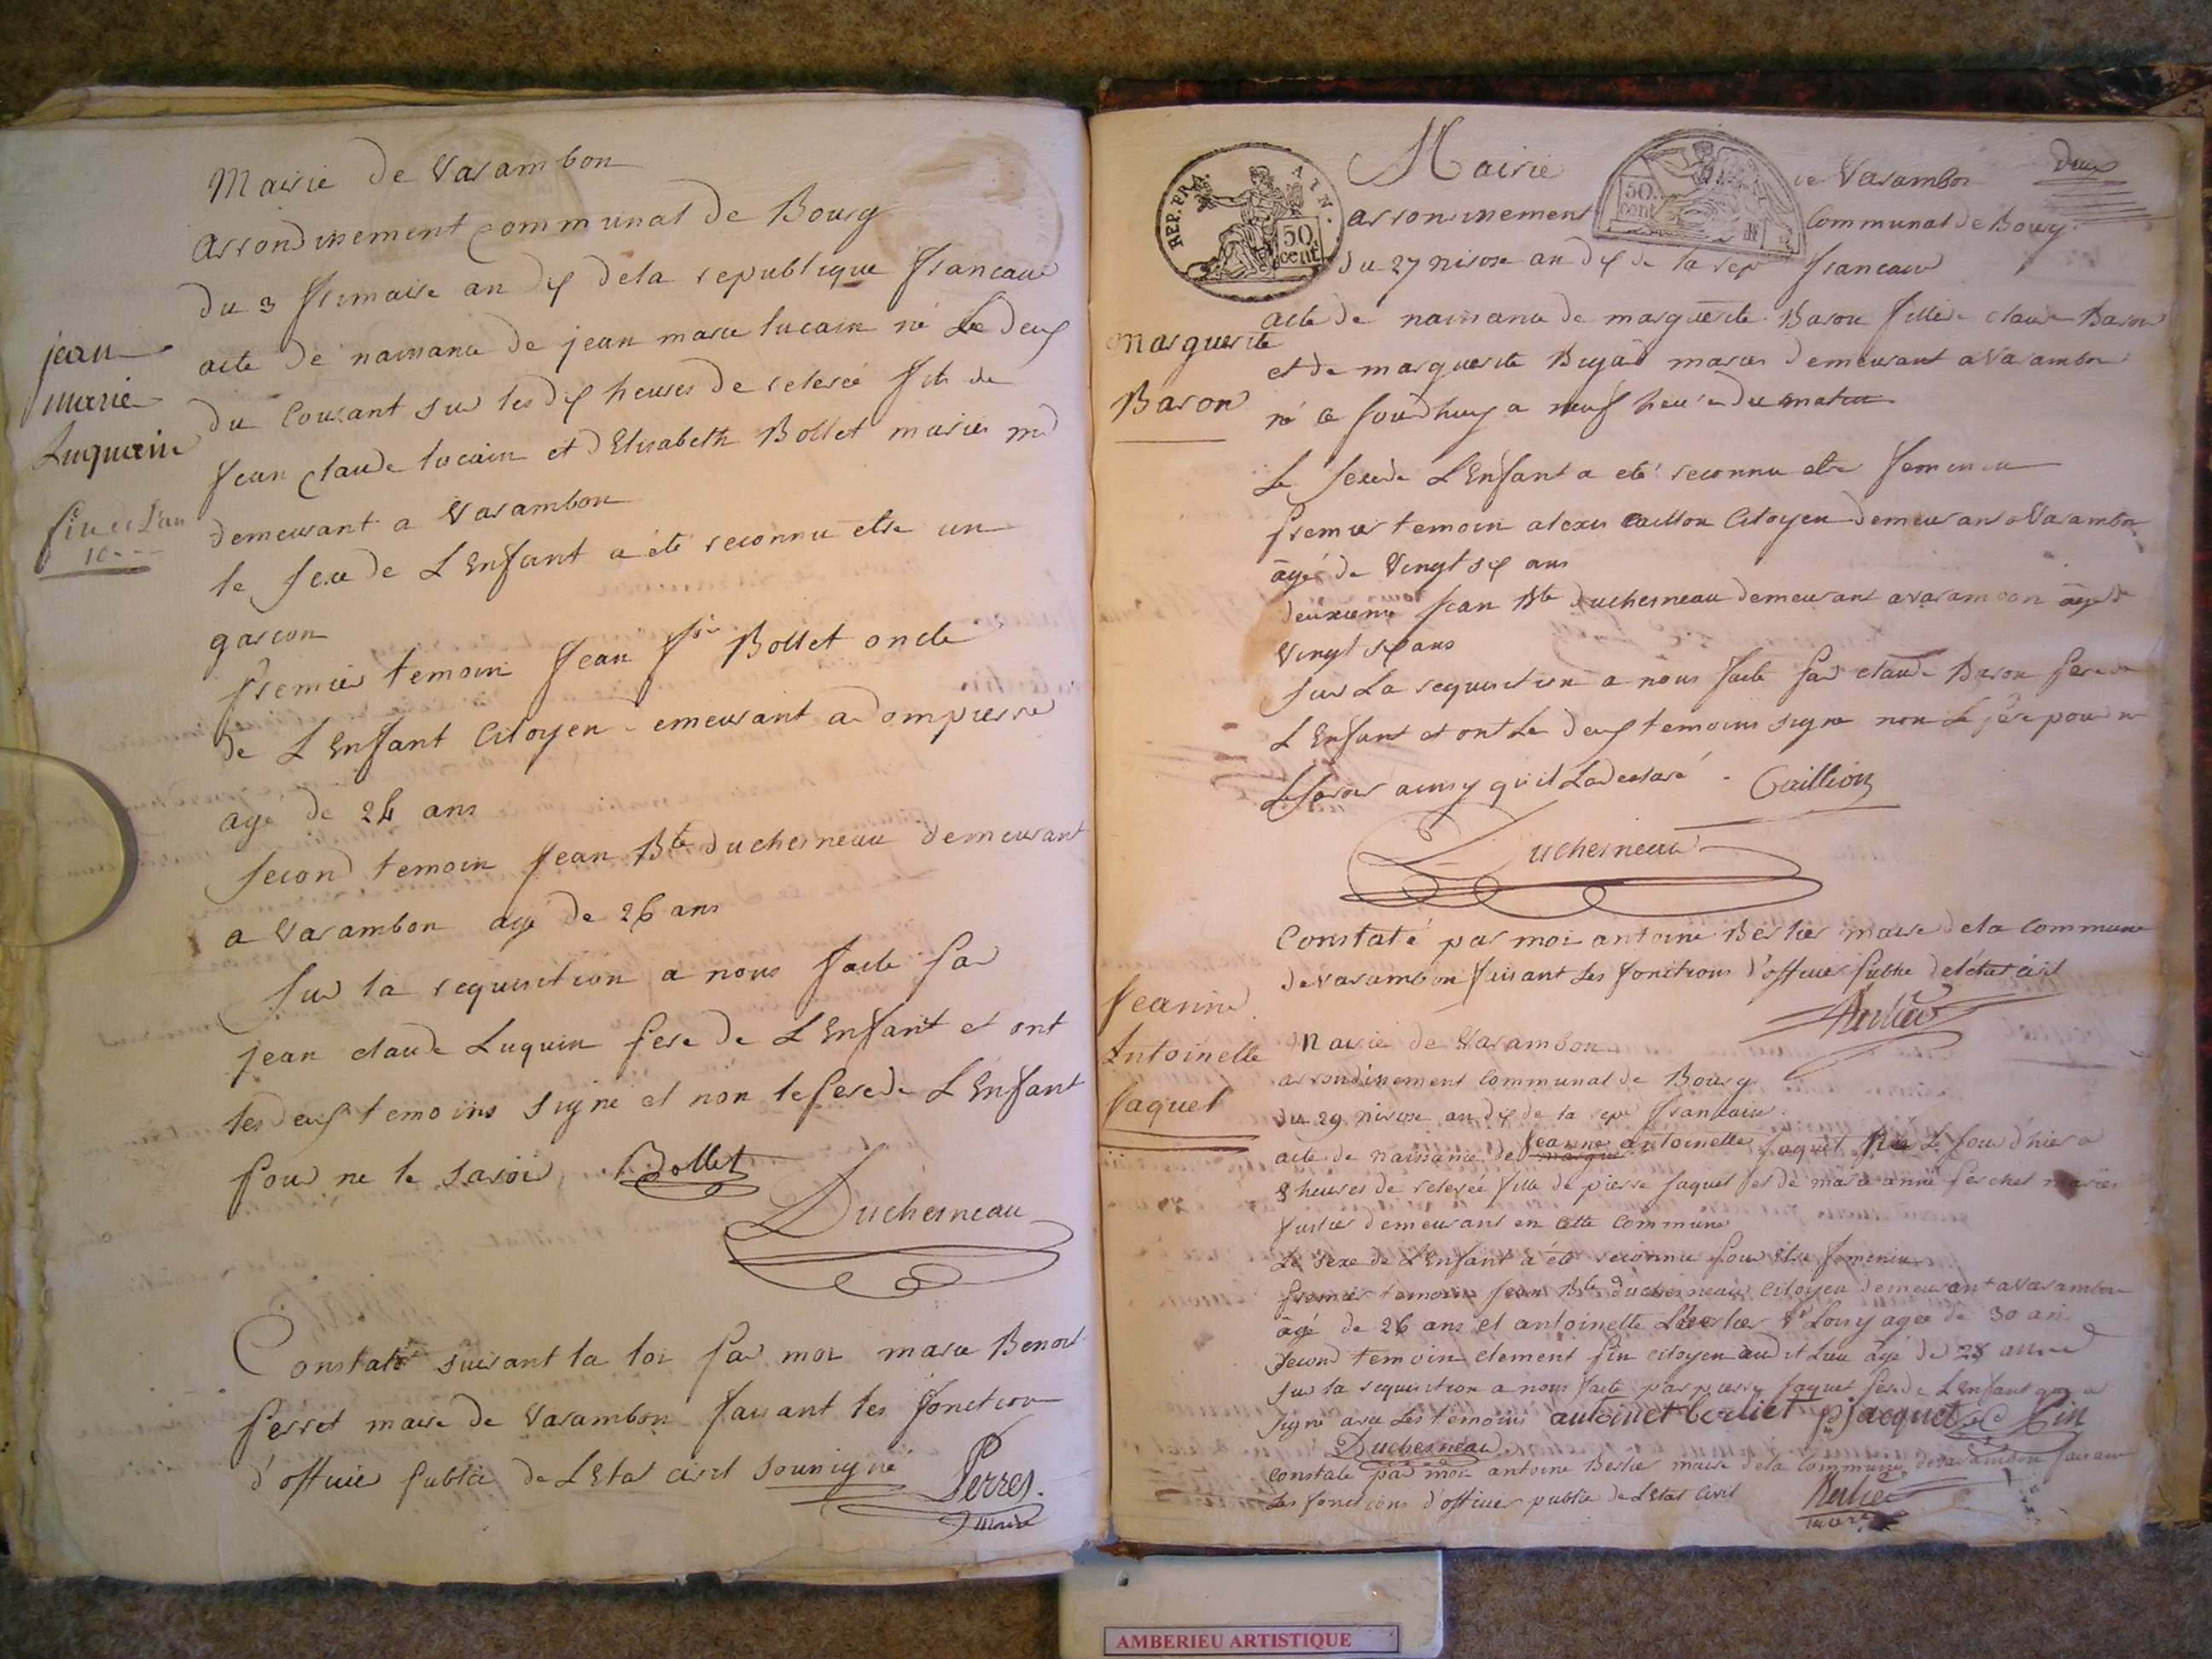 Mairie de Varambon
arrondissement communal de Bourg
du 3 frimaire an dix de la republique francaise
jean
marie
Luquain
acte de naissance de jean marie lucain né Le deux
du Courant sur les dix heures de relevée fils de
jean claude lucain et d'Elisabeth Bollet mariés
demeurant a Varambon
fin de L'an
10
le sexe de L'Enfant a été reconnu etre un
garcon
premier temoin jean Bollet oncle
de L'Enfant Citoyen demeurant a dompierre
age de 24 ans
second temoin jean Bte duchesneau demeurant
a Varambon agé de 26 ans
sur la requisition a nous faite par
jean claude Luquin pere de L'Enfant et ont
les deux temoins signé et non le pere de L'Enfant
pour ne le savoir Bollet
Duchesneau
Constaté suivant la loi par moi marie Benoit
perret maire de Varambon faisant les fonction
d'officier public de L'Etat civil soussigné Perret
maire
Mairie de Varambon deux
arrondissement Communal de Bourg
REP. FRA. ATN. 50 cent
50. cent
du 27 nivose an dix de la rep francaise
Marguerite
Baron
acte de naissance de marguerite Baron fille de claude Baron
et de marguerite mariés demeurant a Varambon
né ce jourdhuy a neuf heure du matin
Le sexe de L'Enfant a été reconnu etre feminin
premier temoin alexis caillon Citoyen demeurant a Varambon
âgé de Vingt six ans
deuxieme jean Bte duchesneau demeurant a varambon âgé de
Vingt six ans
sur La requisition a nous faite par claude Baron pere de
L'Enfant et ont Les deux temoins signe non Le père pour ne
Le savoir ainsy qu'il La declaré. Caillion
Duchesneau
Constaté par moi antoine Berlier maire de la commune
de varambon faisant Les fonctions d'officier public de l'état civil
Berlier
Jeanne
Antoinette
Jaquet
Mairie de Varambon
arrondissement Communal de Bourg
du 29 nivose an dix de la rep francaise
acte de naissance de jeanne antoinette jaquet Née Le jour d'hier a
8 heures de relevée fille de pierre jaquet et de marie anne perchet mariés
demeurant en cette commune
Le sexe de L'Enfant a été reconnu pour etre feminin
premier temoin jean Bte duchesneau Citoyen demeurant a Varambon
âgé de 26 ans et antoinette agee de 30 an
second temoin clement fin citoyen audit Lieu âgé de 28 annee
sur la requisition a nous faite par pierre jaquet père de L'Enfant qui a
signé avec Les temoins antoinet berliet p jacquet C fin
Duchesneau
constaté par moi antoine Berlier maire de la Commune de varambon faisant
Les fonctions d'officier public de L'Etat Civil Berlier
maire
AMBERIEU ARTISTIQUE